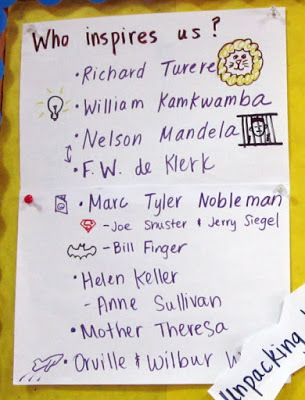 Who inspires us?
• Richard Turere
• William Kamkwamba
• Nelson Mandela
• F. W. de Klerk
• Marc Tyler Nobleman
- Joe Shuster & Jerry Siegel
- Bill Finger
• Helen Keller
- Anne Sullivan
• Mother Theresa
• Orville & Wilbur
Unpacking